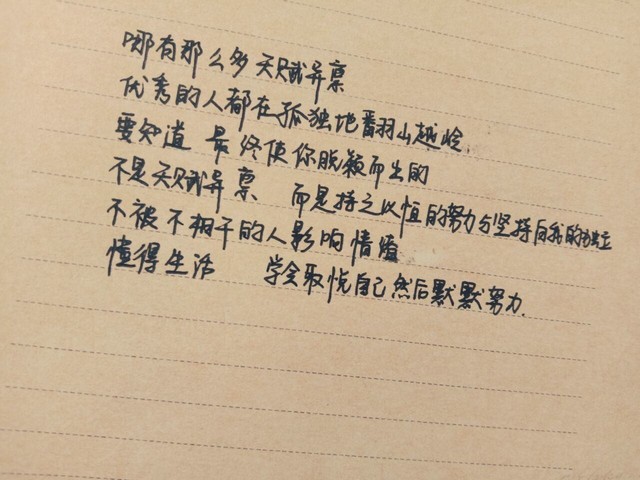 哪有那么多天赋异禀
优秀的人都在孤独地翻山越岭.
要知道 最终使你脱颖而出的
不是天赋异禀 而是持之以恒的努力与坚持自我的独立
不被不相干的人影响情绪
懂得生活 学会取悦自己然后默默努力.